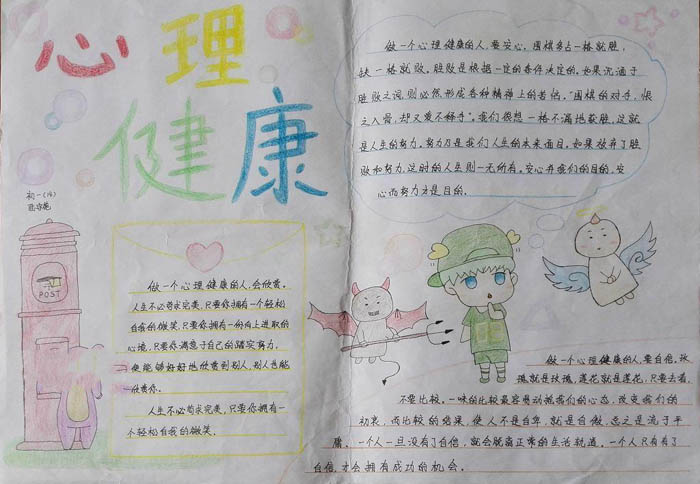 心理
健康
初一(16)
POST
做一个心理健康的人,会欣赏。
人生不必苛求完美,只要你拥有一个轻松
自我的微笑,只要你拥有一份向上进取的
心境,只要你满意于自己的踏实努力。
便能够好好地欣赏到别人,别人也能
欣赏你。
人生不必苛求完美,只要你拥有一
个轻松自我的微笑。
做一个心理健康的人,要安心。围棋多占一格就胜,
缺一格就败。胜败是根据一定的条件决定的。如果沉湎于
胜败之词,则必然形成各种精神上的苦恼。"围棋的对手,恨
之入骨,却又爱不释手"。我们很想一格不漏地获胜,这就
是人生的努力。努力乃是我们人生的本来面目,如果放弃了胜
败和努力,这时的人生则一无所有。安心并我们的目的,安
心而努力才是目的。
做一个心理健康的人,要自信。玫
瑰就是玫瑰,莲花就是莲花,只要去看,
不要比较。一味的比较最容易动摇我们的心态,改变我们的
初衷,而比较的结果,使人不是自卑,就是自傲,总之是流于平
庸。一个人一旦没有了自信,就会脱离正常的生活轨道。一个人只有有了
自信,才会拥有成功的机会。